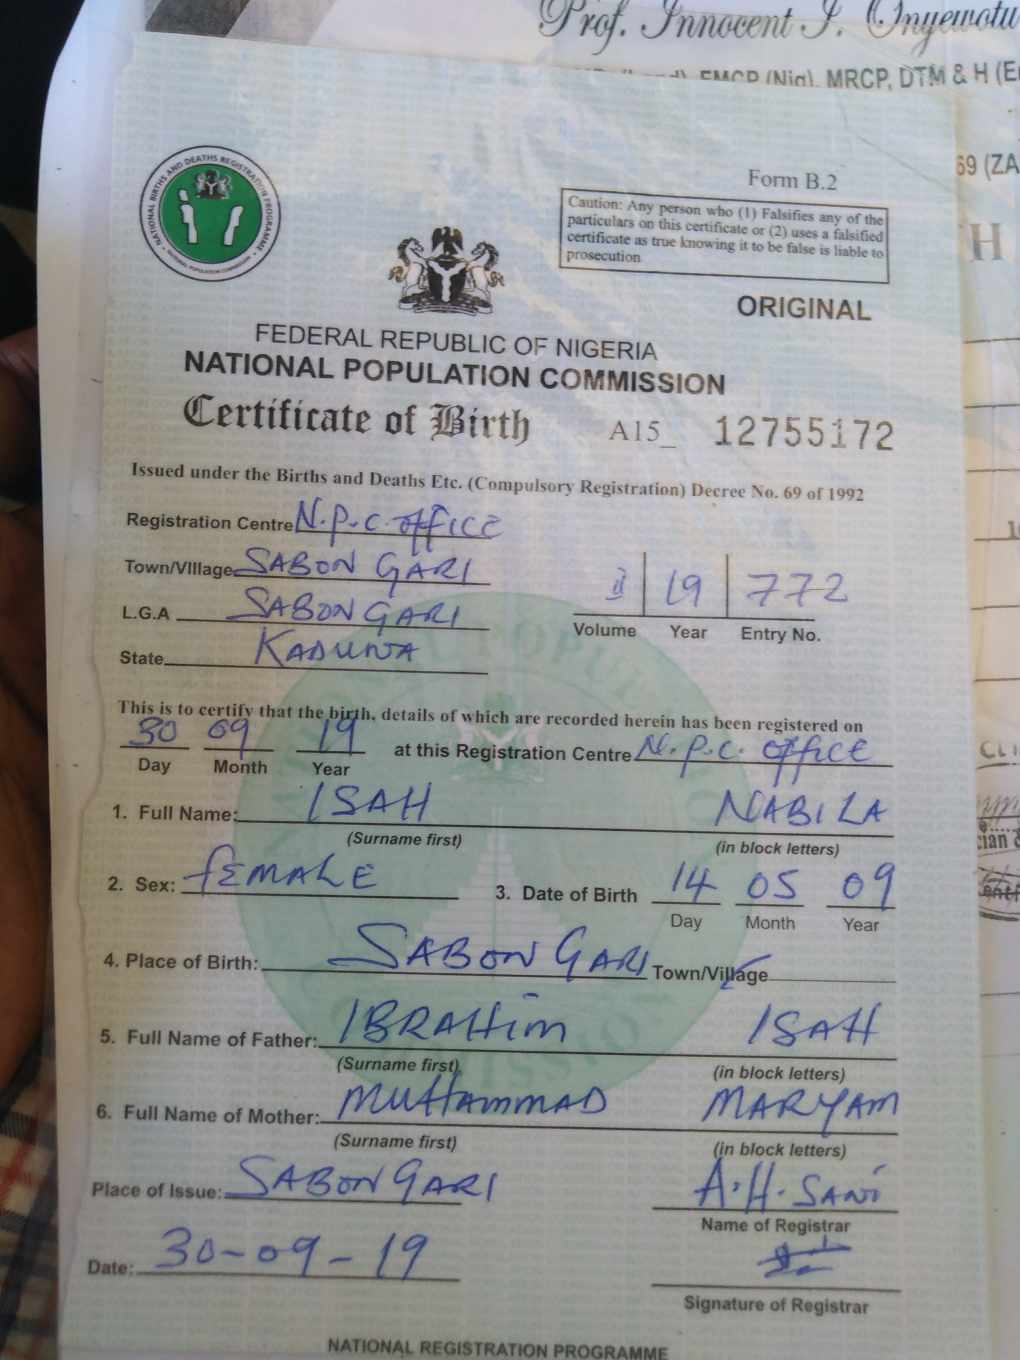 Prof. Innocent I. Onyewotu
FMCP (Nig). MRCP, DTM & H
69 (ZA
NATIONAL BIRTHS AND DEATHS REGISTRATION PROGRAMME
NATIONAL POPULATION COMMISSION
Form B.2
Caution: Any person who (1) Falsifies any of the
particulars on this certificate or (2) uses a falsified
certificate as true knowing it to be false is liable to
prosecution
ORIGINAL
FEDERAL REPUBLIC OF NIGERIA
NATIONAL POPULATION COMMISSION
Certificate of Birth A15_ 12755172
Issued under the Births and Deaths Etc. (Compulsory Registration) Decree No. 69 of 1992
Registration Centre N.P.C. OFFICE
Town/VIllage SABON GARI
L.G.A SABON GARI
19 772
Volume Year Entry No.
State KADUNA
This is to certify that the birth, details of which are recorded herein has been registered on
30 09 19 at this Registration Centre N.P.C. OFFICE
Day Month Year
1. Full Name: ISAH NABILA
(Surname first) (in block letters)
2. Sex: FEMALE 3. Date of Birth 14 05 09
Day Month Year
4. Place of Birth: SABON GARI Town/Village
5. Full Name of Father: IBRAHIM ISAH
(Surname first) (in block letters)
6. Full Name of Mother: MUHAMMAD MARYAM
(Surname first) (in block letters)
Place of Issue: SABON GARI A.H. SANI
Name of Registrar
Date: 30-09-19
Signature of Registrar
NATIONAL REGISTRATION PROGRAMME